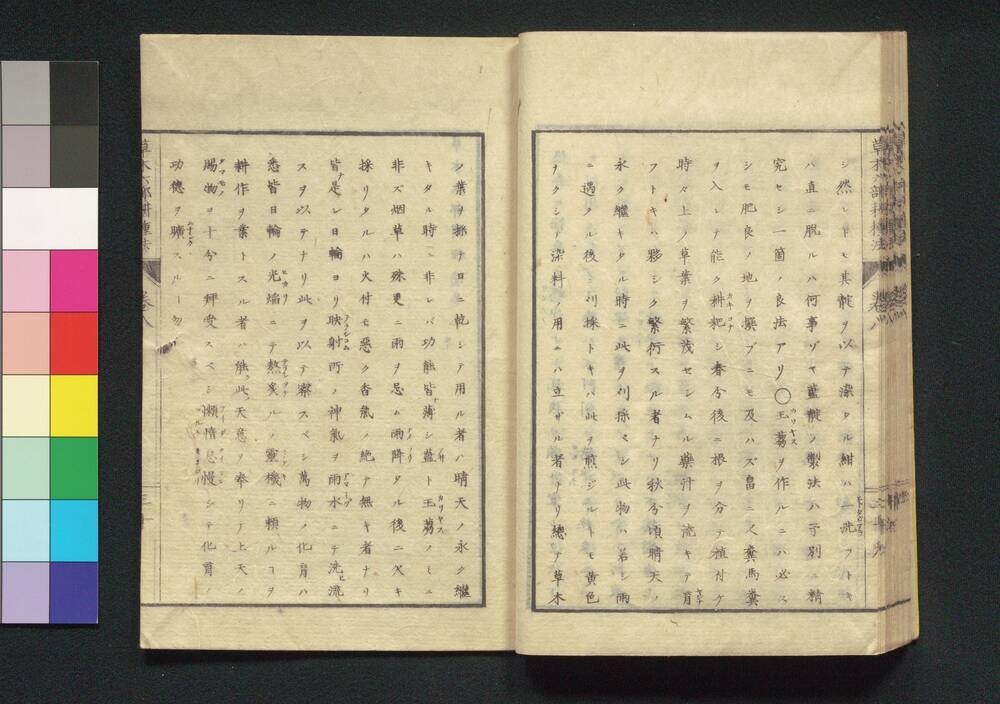 シ然レドモ其靛ヲ以テ染タル紺ハ一洗フトキ
ハ直ニ脱ルハ何事ゾヤ藍靛ノ製法ハ予別ニ精
究セシ一箇ノ良法アリ〇王蒭ヲ作ルニハ必ス
シモ肥良ノ地ヲ撰ブニモ及ハズ畠ニ人糞馬糞
ヲ入レテ能ク耕耙シ春分後ニ根ヲ分テ植付ケ
時々上ノ草業ヲ繁茂セシムル藥汁ヲ流キテ育
フトキハ夥シク繁衍スル者ナリ秋分頃晴天ノ
永ク繼キタル時ニ此ヲ刈採ベシ此物ハ若シ雨
ニ遇タル後ニ刈採トキハ此ヲ煎ジルトモ黄色
ヲクシテ染料ノ用ニハ立ザル者ナリ總テ草木
ノ葉ヲ採テ日ニ乾シテ用ル者ハ晴天ノ永ク繼
キタル時ニ非レバ功能皆薄シ藍ト王蒭ノミニ
非ズ烟草ハ殊更ニ雨ヲ忌ム雨降タル後ニ欠キ
採リタルハ火付モ惡ク香氣ノ絶テ無キ者ナリ
皆是レ日輪ヨリ映射所ノ神氣ヲ雨水ニテ洗流
スヲ以テナリ此ヲ以テ察スベシ萬物ノ化育ハ
悉皆日輪ノ光焔ニテ熱炙ルノ靈機ニ頼ルコヲ
耕作ヲ業トスル者ハ能此天意ヲ奉リテ上天ノ
賜物ヲ十分ニ拜受スベシ懶惰怠慢シテ化育ノ
功德ヲ曠スルー勿